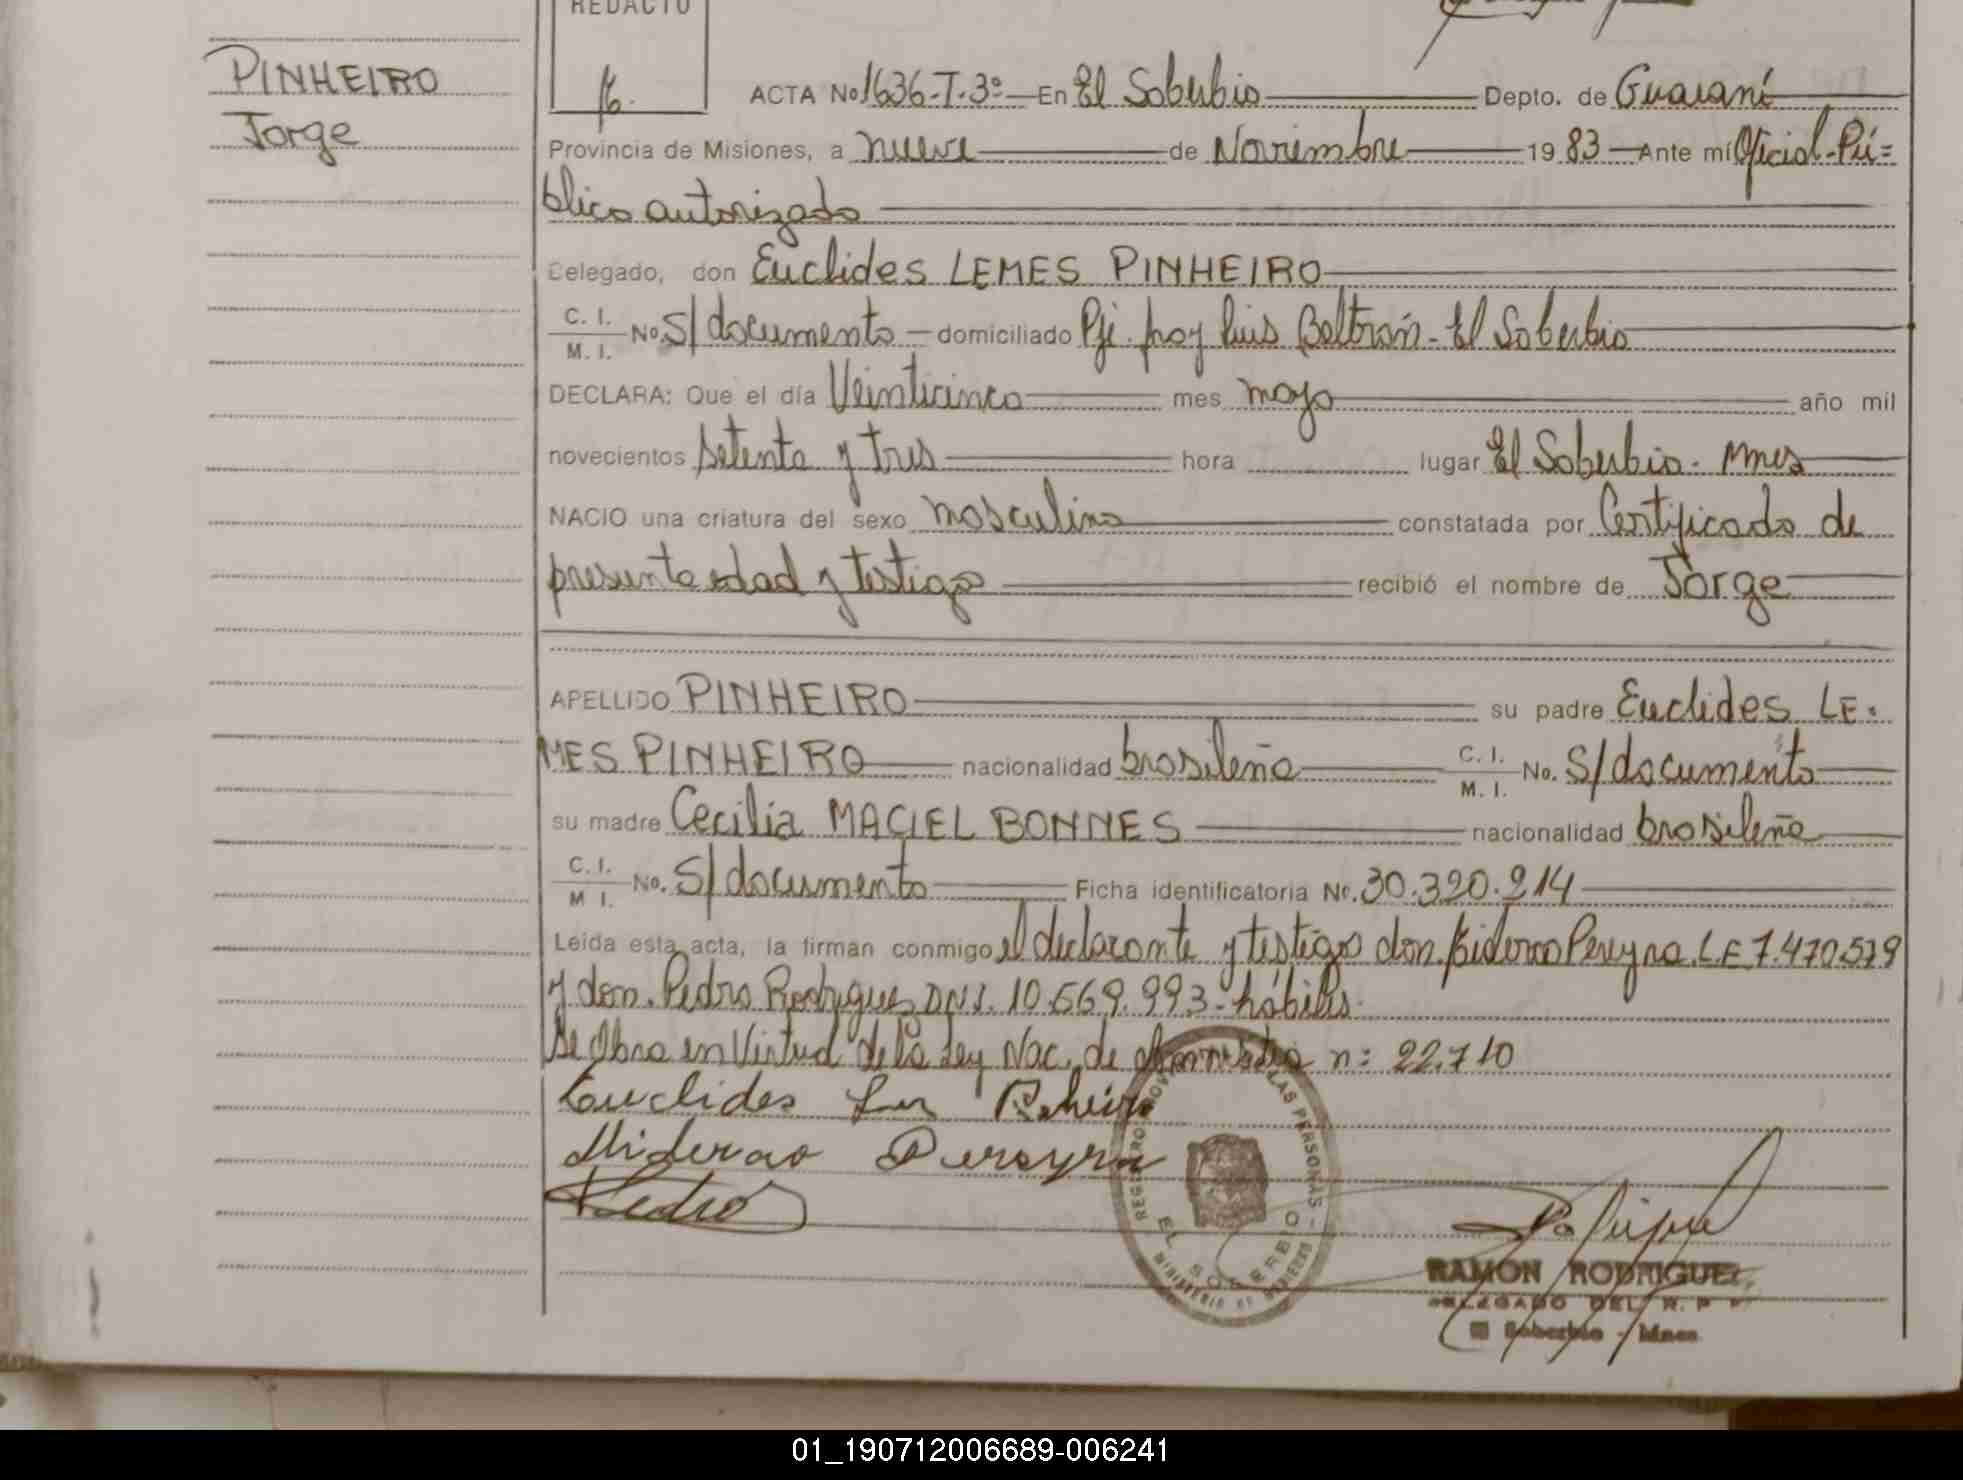 REDACTO
PINHEIRO
Jorge
ACTA No 1636-T-3º En El Soberbio Depto. de Guaraní
Provincia de Misiones, a nueve de Noviembre 19 83 Ante mí Oficial-Pú=
blico autorizado
Delegado, don Euclides LEMES PINHEIRO
C. I.
M. I. No. S/documento domiciliado Pje. Fray Luis Beltrán - El Soberbio
DECLARA: Que el día Veinticinco mes mayo año mil
novecientos setenta y tres hora lugar El Soberbio. Mnes
NACIO una criatura del sexo masculino constatada por Certificado de
presunta edad y testigo recibió el nombre de Jorge
APELLIDO PINHEIRO su padre Euclides LE-
MES PINHEIRO nacionalidad brasileña C. I. M. I. No. S/documento
su madre Cecilia MACIEL BONNES nacionalidad brasileña
C. I.
M. I. No. S/documento Ficha identificatoria No. 30.320.214
Leída esta acta, la firman conmigo el declarante y testigo don Pereyra. L.E 7.470.579
y don. Pedro Rodrigues DNI. 10.669.993 - hábiles.
Se Obra en Virtud de la Ley Nac. de Amnistia n: 22.710
Euclides Pinheiro
Pereyra
Pedro
REGISTRO PROV. LAS PERSONAS -
EL SOBERBIO
MINISTERIO DE GOBIERNO
RAMON RODRIGUEZ
DELEGADO DEL R. P. P.
El Soberbio - Mnes.
01_190712006689-006241